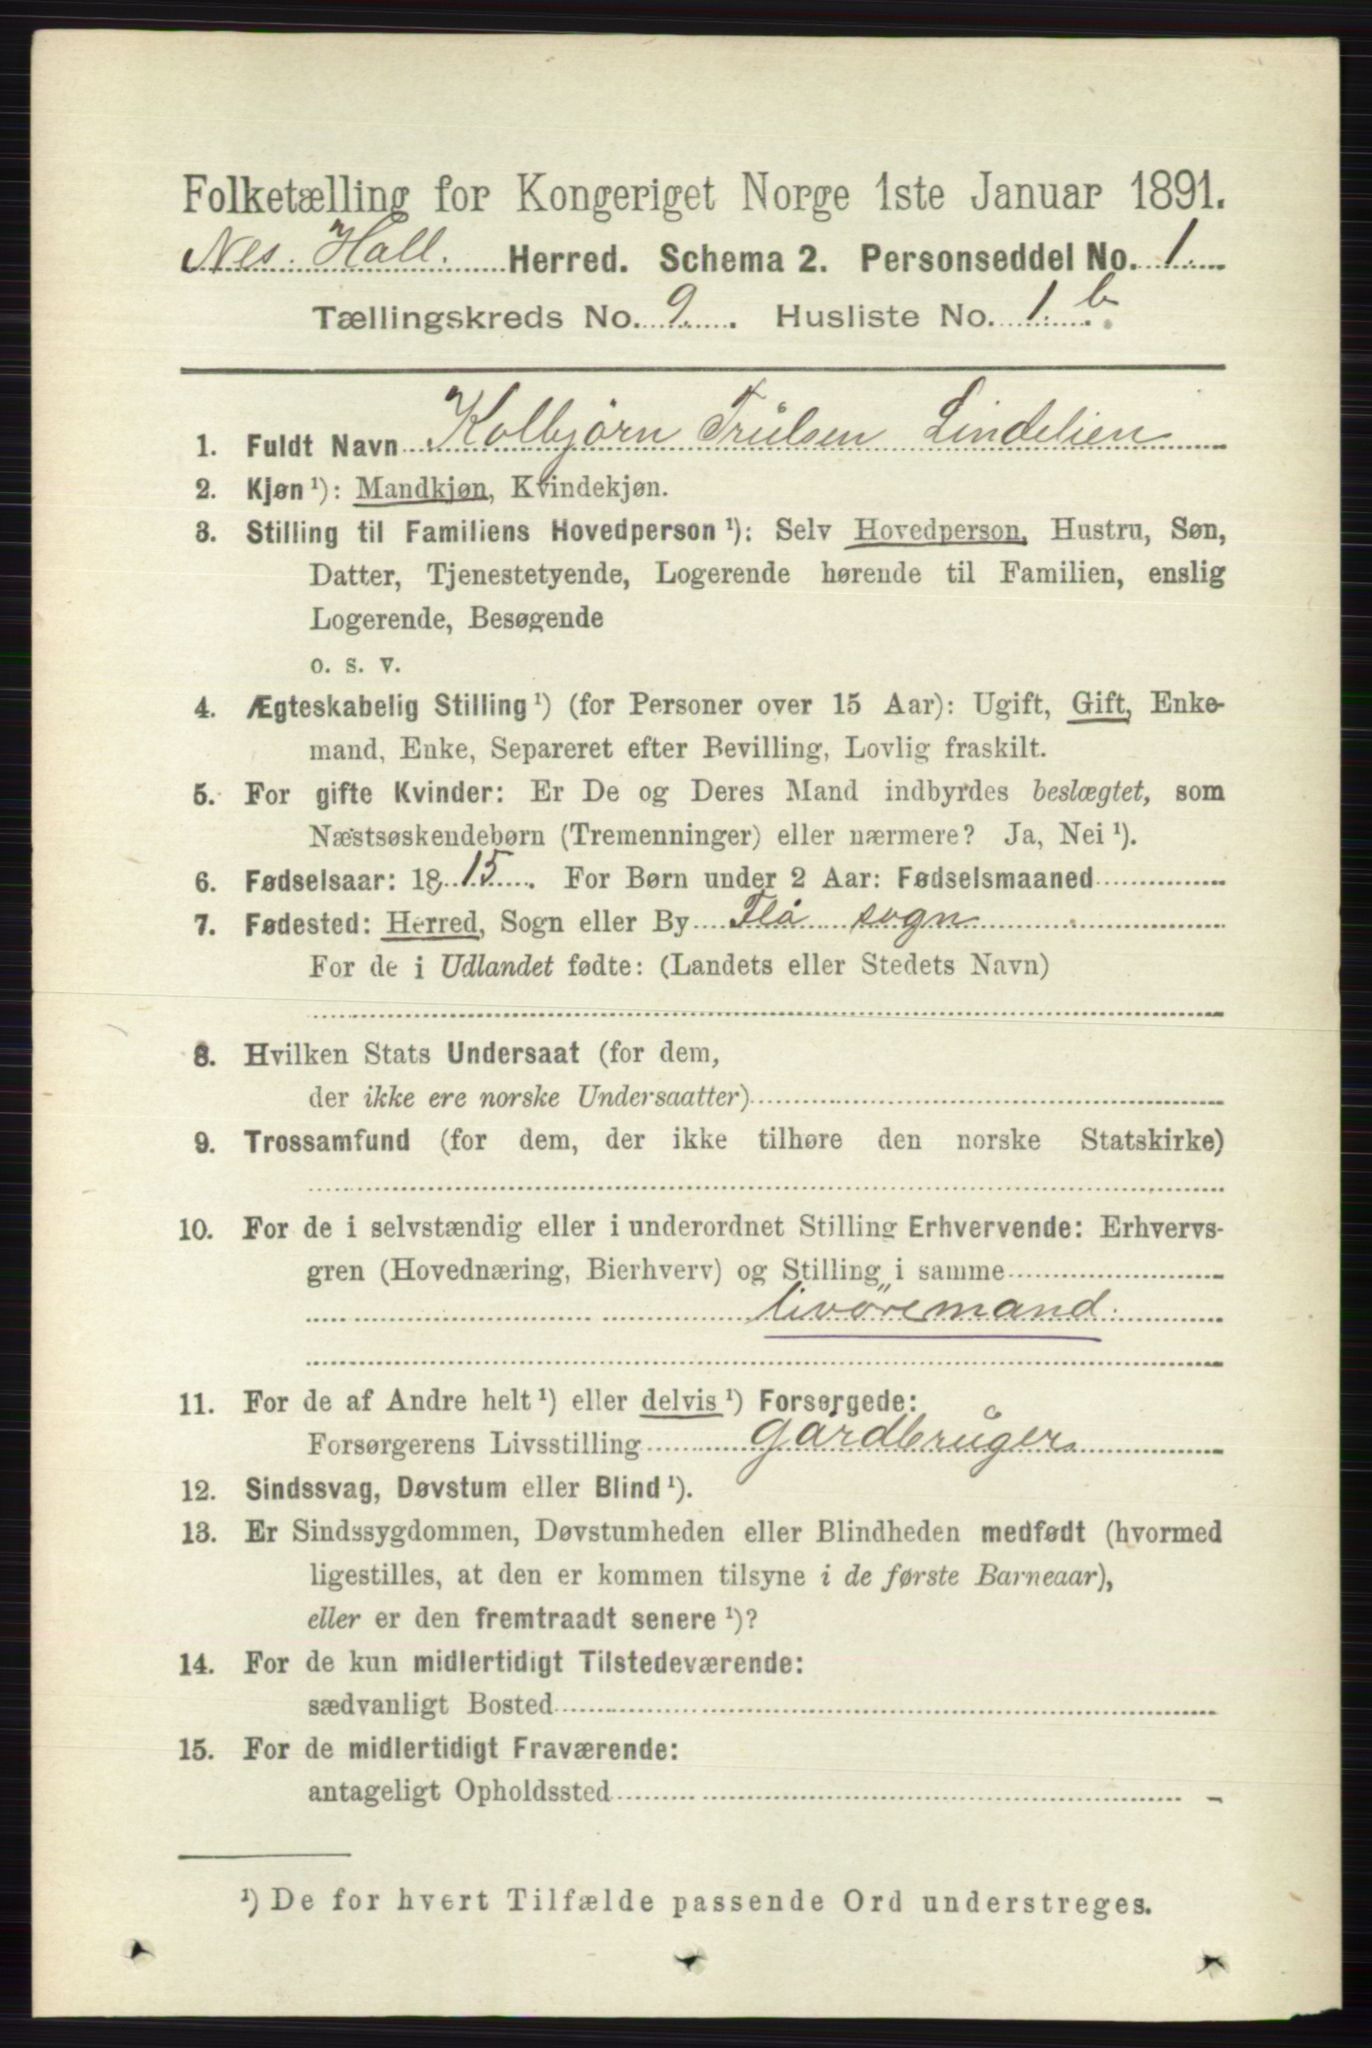 Folketælling for Kongeriget Norge 1ste Januar 1891.
Nes. Hall. Herred. Schema 2. Personseddel No. 1.
Tællingskreds No. 9. Husliste No. 1. b.
1. Fuldt Navn Kolbjørn Trulsen Lindelien
2. Kjøn ¹): Mandkjøn, Kvindekjøn.
3. Stilling til Familiens Hovedperson ¹): Selv Hovedperson, Hustru, Søn,
Datter, Tjenestetyende, Logerende hørende til Familien, enslig
Logerende, Besøgende
o. s. v.
4. Ægteskabelig Stilling ¹) (for Personer over 15 Aar): Ugift, Gift, Enke-
mand, Enke, Separeret efter Bevilling, Lovlig fraskilt.
5. For gifte Kvinder: Er De og Deres Mand indbyrdes beslægtet, som
Næstsøskendebørn (Tremenninger) eller nærmere? Ja, Nei ¹).
6. Fødselsaar: 18 15. For Børn under 2 Aar: Fødselsmaaned
7. Fødested: Herred, Sogn eller By Flå sogn
For de i Udlandet fødte: (Landets eller Stedets Navn)
8. Hvilken Stats Undersaat (for dem,
der ikke ere norske Undersaatter)
9. Trossamfund (for dem, der ikke tilhøre den norske Statskirke)
10. For de i selvstændig eller i underordnet Stilling Erhvervende: Erhvervs-
gren (Hovednæring, Bierhverv) og Stilling i samme
livöremand.
11. For de af Andre helt ¹) eller delvis ¹) Forsørgede:
Forsørgerens Livsstilling gårdbruger
12. Sindssvag, Døvstum eller Blind ¹).
13. Er Sindssygdommen, Døvstumheden eller Blindheden medfødt (hvormed
ligestilles, at den er kommen tilsyne i de første Barneaar),
eller er den fremtraadt senere ¹)?
14. For de kun midlertidigt Tilstedeværende:
sædvanligt Bosted
15. For de midlertidigt Fraværende:
antageligt Opholdssted
¹) De for hvert Tilfælde passende Ord understreges.